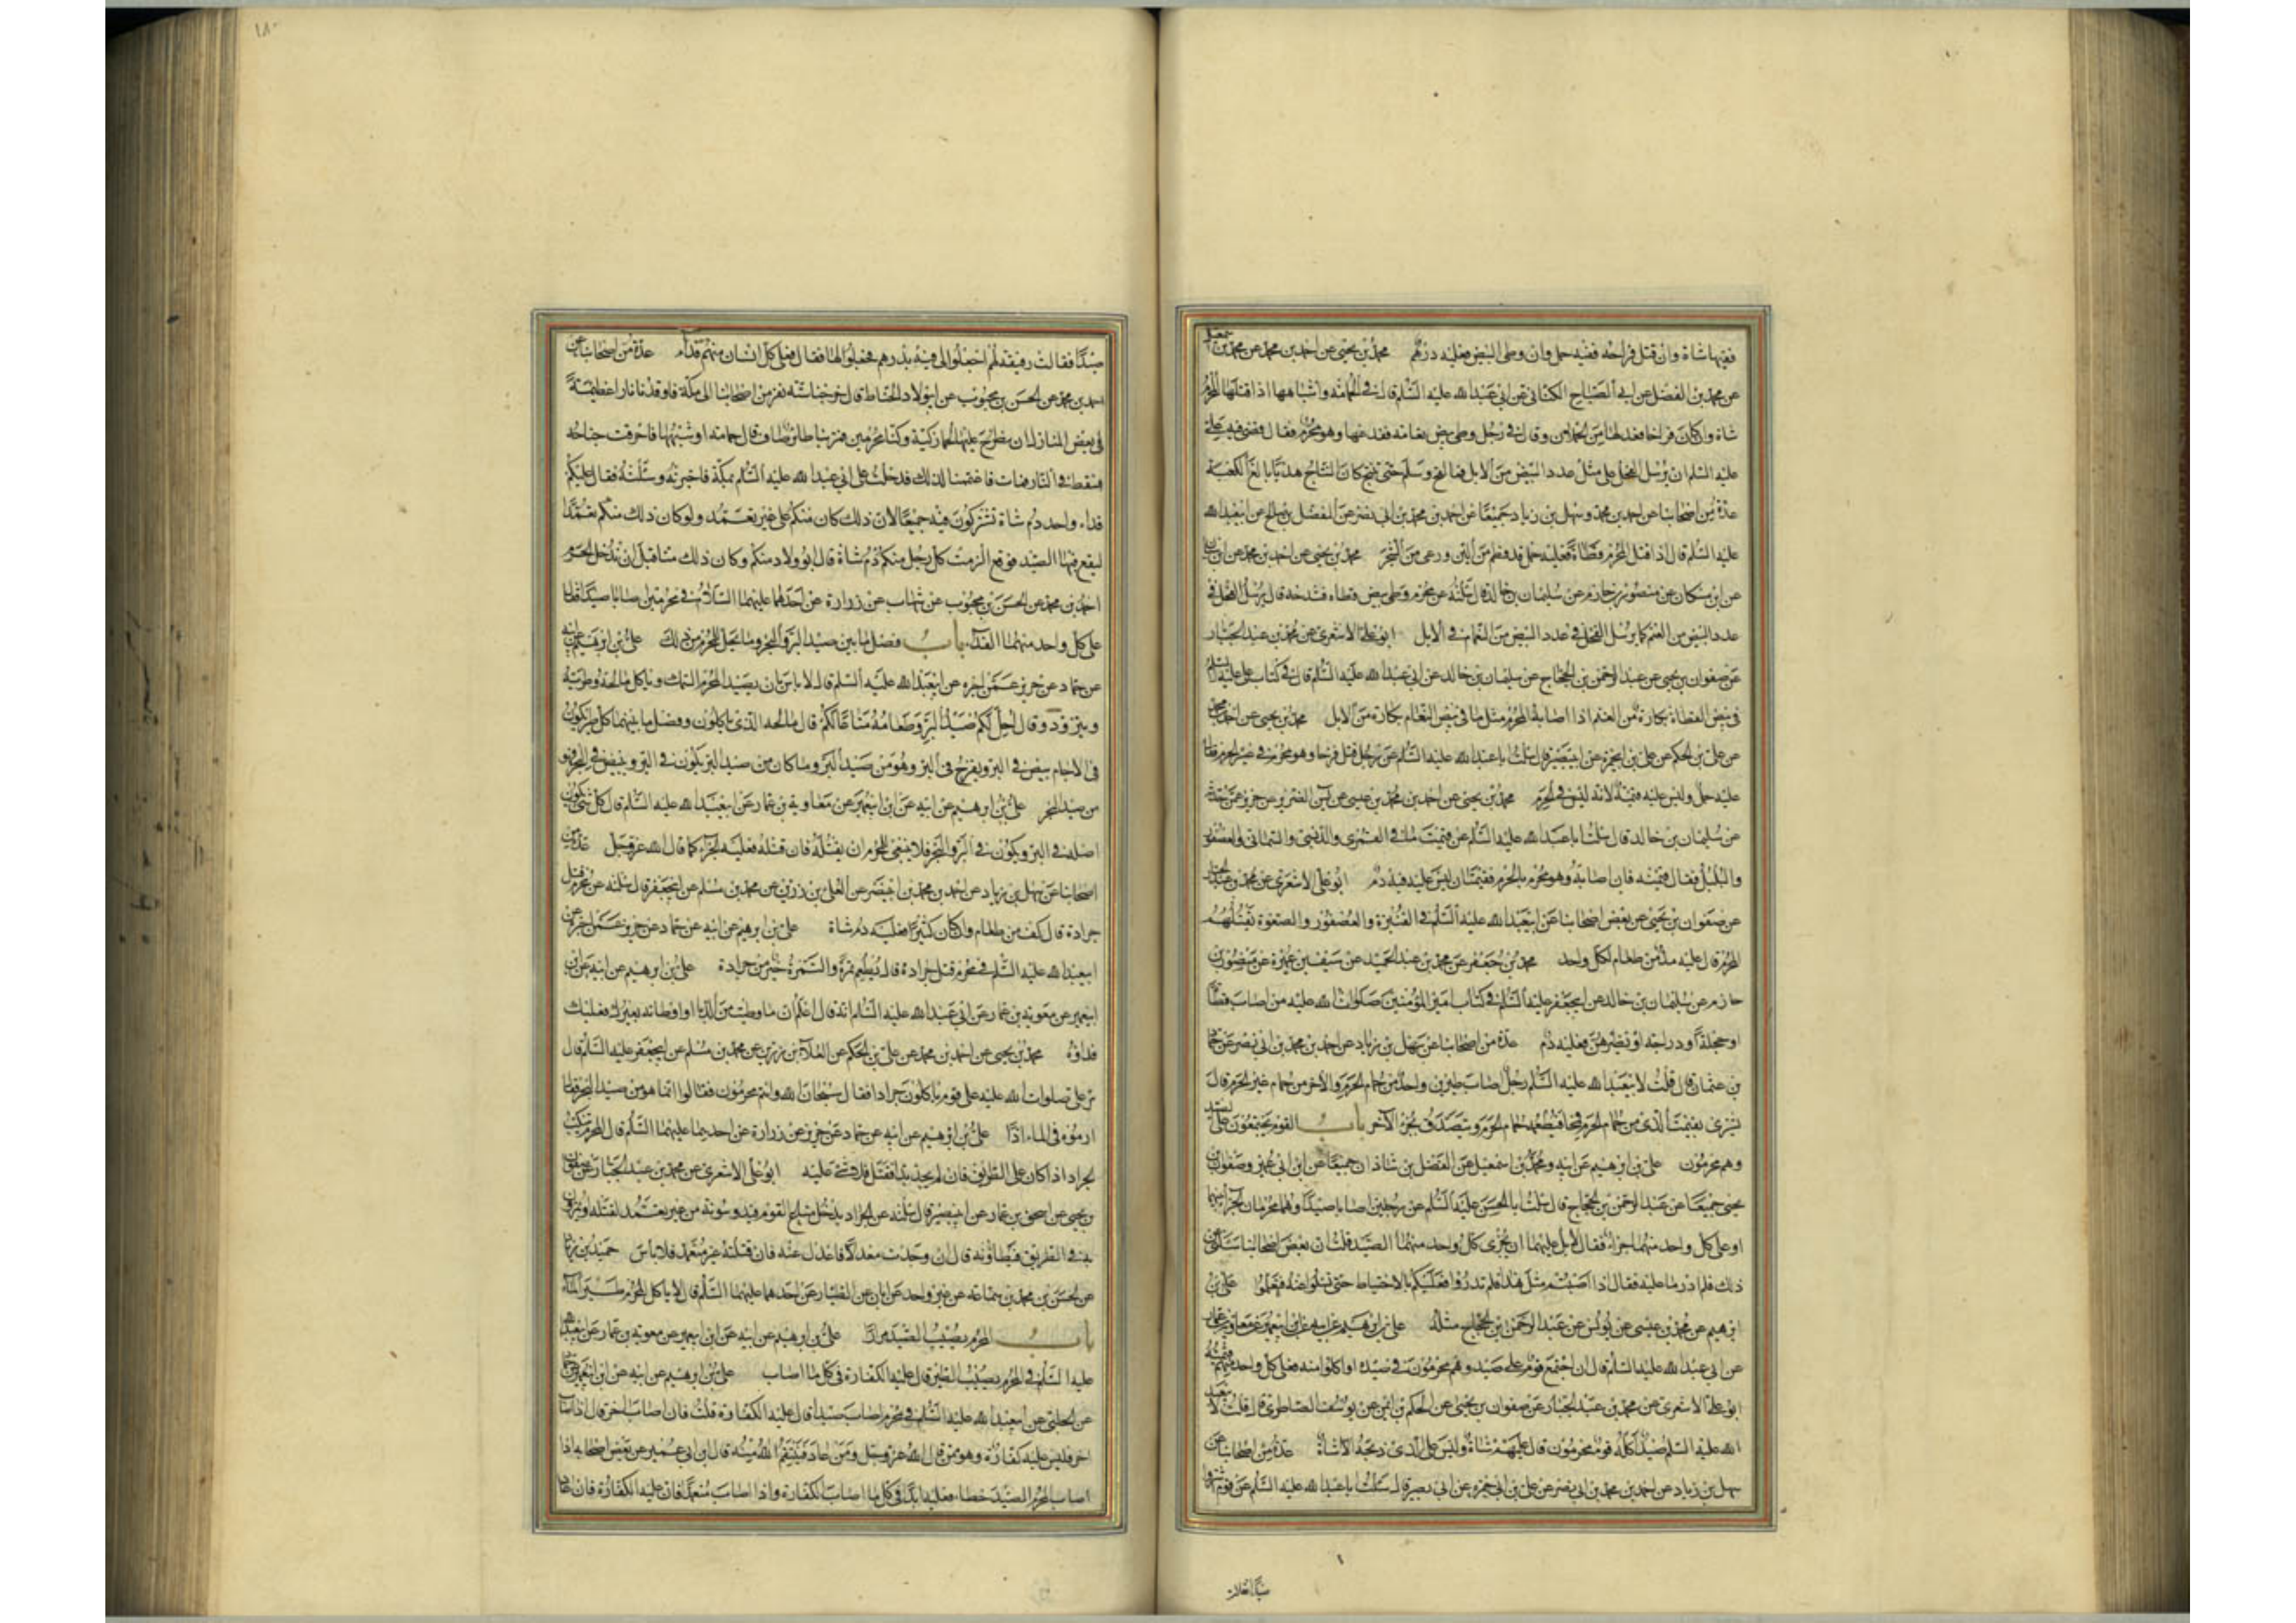 ففيها شاة وان قتل فراخه ففيه حمل وان وطى البيض فعليه درهم محمد بن يحيى عن احمد بن محمد عن محمد بن اسمعيل
عن محمد بن الفضل عن ابى الصباح الكنانى عن ابى عبد الله عليه السلم قال فى الحمامة واشباهها اذا قتلها المحرم
شاة وان كان فراخا فعدلها من الحملان وقال فى رجل وطى بيض نعامه ففدغها وهو محرم فقال قضى فيه على
عليه السلم ان يرسل الفحل على مثل عدد البيض من الابل فما لقح وسلم حتى ينتج كان النتاج هديا بالغ الكعبة
عدة من اصحابنا عن احمد بن محمد وسهل بن زياد جميعا عن احمد بن محمد بن ابى نصر عن المفضل بن صالح عن ابيعبد الله
عليه السلم قال اذا قتل المحرم قطاة فعليه حمل قد فطم من اللبن ورعى من الشجر محمد بن يحيى عن احمد بن محمد عن
عن ابن مسكان عن منصور بن حازم عن سليمان بن خالد قال سئلته عن محرم وطى بيض قطاه فشدخه قال يرسل الفحل فى
عدد البيض من الغنم كما يرسل الفحل فى عدد البيض من النعام فى الابل ابو على الاشعرى عن محمد بن عبد الجبار
عن صفوان بن يحيى عن عبد الرحمن بن الحجاج عن سليمان بن خالد عن ابى عبد الله عليه السلم قال فى كتاب على عليه السلم
فى بيض القطاة بكارة من الغنم اذا اصابه المحرم مثل ما فى بيض النعام بكارة من الابل محمد بن يحيى عن احمد بن محمد
عن على بن الحكم عن على بن ابيحمزة عن ابيبصير قال سئلت ابا عبد الله عليه السلم عن رجل قتل فرخا وهو محرم فى غير الحرم فقال
عليه حمل وليس عليه قيمته لانه ليس فى الحرم محمد بن يحيى عن احمد بن محمد بن عيسى عن ياسين الضرير عن حريز عمن حدثه
عن سليمان بن خالد قال سئلت ابا عبد الله عليه السلم عن قيمة ما فى القمرى والدبسى والسمانى والعصفور
والبلبل فقال قيمته فان اصابه وهو محرم بالحرم فقيمتان ليس عليه فيه دم ابو على الاشعرى عن محمد بن عبد الجبار
عن صفوان بن يحيى عن بعض اصحابنا عن ابيعبد الله عليه السلم فى القنبرة والعصفور والصعوة يقتلهم
المحرم قال عليه مد من طعام لكل واحد محمد بن جعفر عن محمد بن عبد الحميد عن سيف بن عميرة عن منصور بن
حازم عن سليمان بن خالد عن ابيجعفر عليه السلم فى كتاب امير المؤمنين صلوات الله عليه من اصاب قطاة
او حجلة او دراجة او نظيرهن فعليه دم عدة من اصحابنا عن سهل بن زياد عن احمد بن محمد بن ابى نصر عن حماد
بن عثمان قال قلت لابيعبد الله عليه السلم رجل اصاب طيرين واحد من حمام الحرم والاخر من حمام غير الحرم قال
يشترى بقيمة الذى من حمام الحرم قمحا فيطعمه حمام الحرم ويتصدق بجزاء الآخر باب القوم يجتمعون على الصيد
وهم محرمون على بن ابرهيم عن ابيه ومحمد بن اسمعيل عن الفضل بن شاذان جميعا عن ابن ابى عمير وصفوان بن
يحيى جميعا عن عبد الرحمن بن الحجاج قال سئلت ابا الحسن عليه السلم عن رجلين اصابا صيدا وهما محرمان الجزاء بينهما
او على كل واحد منهما جزاء فقال لا بل عليهما ان يجزى كل واحد منهما الصيد قلت ان بعض اصحابنا سئلنى عن
ذلك فلم ادر ما عليه فقال اذا اصبتم مثل هذا فلم تدروا فعليكم بالاحتياط حتى تسئلوا عنه فتعلموا على بن
ابرهيم عن محمد بن عيسى عن يونس عن عبد الرحمن بن الحجاج مثله على بن ابرهيم عن ابيه عن ابن ابيعمير عن معاوية بن عمار
عن ابى عبد الله عليه السلم قال ان اجتمع قوم على صيد وهم محرمون فى صيده او اكلوا منه فعلى كل واحد منهم قيمته
ابو على الاشعرى عن محمد بن عبد الجبار عن صفوان بن يحيى عن الحكم بن ايمن عن يوسف الطاطرى قال قلت لابيعبد
الله عليه السلم صيد اكله قوم محرمون قال عليهم شاة وليس على الذى ذبحه الا شاة عدة من اصحابنا عن
سهل بن زياد عن احمد بن محمد بن ابى نصر عن على بن ابى حمزه عن ابى بصير قال سئلت ابا عبد الله عليه السلم عن قوم اشتروا
صيدا فقالت
١٨٠
صيدا فقالت رفيقة لهم اجعلوا لى فيه بدرهم فجعلوا لها فقال على كل انسان منهم فداء عدة من اصحابنا عن
احمد بن محمد عن الحسن بن محبوب عن ابى ولاد الحناط قال خرجنا ستة نفر من اصحابنا الى مكة فاوقدنا نارا عظيمة
فى بعض المنازل اردنا ان نطرح عليها لحما زكية وكنا محرمين فمر بنا طائر صاف قال حمامة او شبهها فاحرقت جناحه
فسقط فى النار فمات فاغتممنا لذلك فدخلت على ابى عبد الله عليه السلم بمكة فاخبرته وسئلته فقال عليكم
فداء واحد دم شاة تشتركون فيه جميعا لان ذلك كان منكم على غير تعمد ولو كان ذلك منكم تعمدا
ليقع فيها الصيد فوقع الزمت كل رجل منكم دم شاة قال ابو ولاد منكم وكان ذلك منا قبل ان ندخل الحرم
احمد بن محمد عن الحسن بن محبوب عن شهاب عن زرارة عن احدهما عليهما السلام فى محرمين اصابا صيدا فقال
على كل واحد منهما الفداء باب فصل ما بين صيد البر والبحر وما يحل للمحرم من ذلك على بن ابرهيم عن ابيه
عن حماد عن حريز عمن اخبره عن ابيعبد الله عليه السلم قال لا باس بان يصيد المحرم السمك وياكل مالحه وطريه
ويتزود وقال احل لكم صيد البر وطعامه متاعا لكم قال مالحه الذى ياكلون وفصل ما بينهما كل طير يكون
فى الاجام يبيض فى البر ويفرخ فى البر وهو من صيد البر وما كان من صيد البر يكون فى البر ويبيض فى البحر فهو
من صيد البحر على بن ابرهيم عن ابيه عن ابن ابيعمير عن معاوية بن عمار عن ابيعبد الله عليه السلم قال كل شىء يكون
اصله فى البر ويكون فى البر والبحر فلا ينبغى للمحرم ان يقتله فان قتله فعليه الجزاء كما قال الله عز وجل عدة من
اصحابنا عن سهل بن زياد عن احمد بن محمد بن ابينصر عن العلا بن رزين عن محمد بن مسلم عن ابيجعفر قال سئلته عن محرم قتل
جرادة قال كف من طعام وان كان كثيرا فعليه دم شاة على بن ابرهيم عن ابيه عن حماد عن حريز عمن اخبره عن
ابيعبد الله عليه السلم فى محرم قتل جرادة قال يطعم تمرة والتمرة خير من جرادة على بن ابرهيم عن ابيه عن ابن
ابيعمير عن معوية بن عمار عن ابى عبد الله عليه السلم انه قال اعلم ان ما وطيت من الدبا او اوطاته بعيرك فعليك
فداؤه محمد بن يحيى عن احمد بن محمد عن على بن الحكم عن العلاء بن رزين عن محمد بن مسلم عن ابيجعفر عليه السلم قال
مر على صلوات الله عليه على قوم ياكلون جرادا فقال سبحان الله وانتم محرمون فقالوا انما هو من صيد البحر فقال
ارموه فى الماء اذا على بن ابرهيم عن ابيه عن حماد عن حريز عن زرارة عن احدهما عليهما السلم قال المحرم يتنكب
الجراد اذا كان على الطريق فان لم يجد بدا فقتل فلا شىء عليه ابو على الاشعرى عن محمد بن عبد الجبار عن صفوان
بن يحيى عن اسحق بن عمار عن ابيبصير قال سئلته عن الجراد يدخل متاع القوم فيدوسونه من غير تعمد لقتله او يمرون
به فى الطريق فيطاؤنه قال ان وجدت معدلا فاعدل عنه فان قتلته غير متعمد فلا باس حميد بن زياد
عن الحسن بن محمد بن سماعة عن غير واحد عن ابان عن الطيار عن احدهما عليهما السلم قال لا ياكل المحرم طير الماء
باب المحرم يصيب الصيد مرارا على بن ابرهيم عن ابيه عن ابن ابيعمير عن معوية بن عمار عن ابيعبد الله
عليه السلم فى المحرم يصيب الطير قال عليه الكفارة فى كل ما اصاب على بن ابرهيم عن ابيه عن ابن ابيعمير عن حماد
عن الحلبى عن ابيعبد الله عليه السلم فى محرم اصاب صيدا قال عليه الكفارة قلت فان اصاب اخر قال اذا اصاب
اخر فليس عليه كفارة وهو ممن قال الله عز وجل ومن عاد فينتقم الله منه قال ابن ابى عمير عن بعض اصحابه اذا
اصاب المحرم الصيد خطاء فعليه ابدا فى كل ما اصاب الكفارة واذا اصاب متعمدا فان عليه الكفارة فان عاد